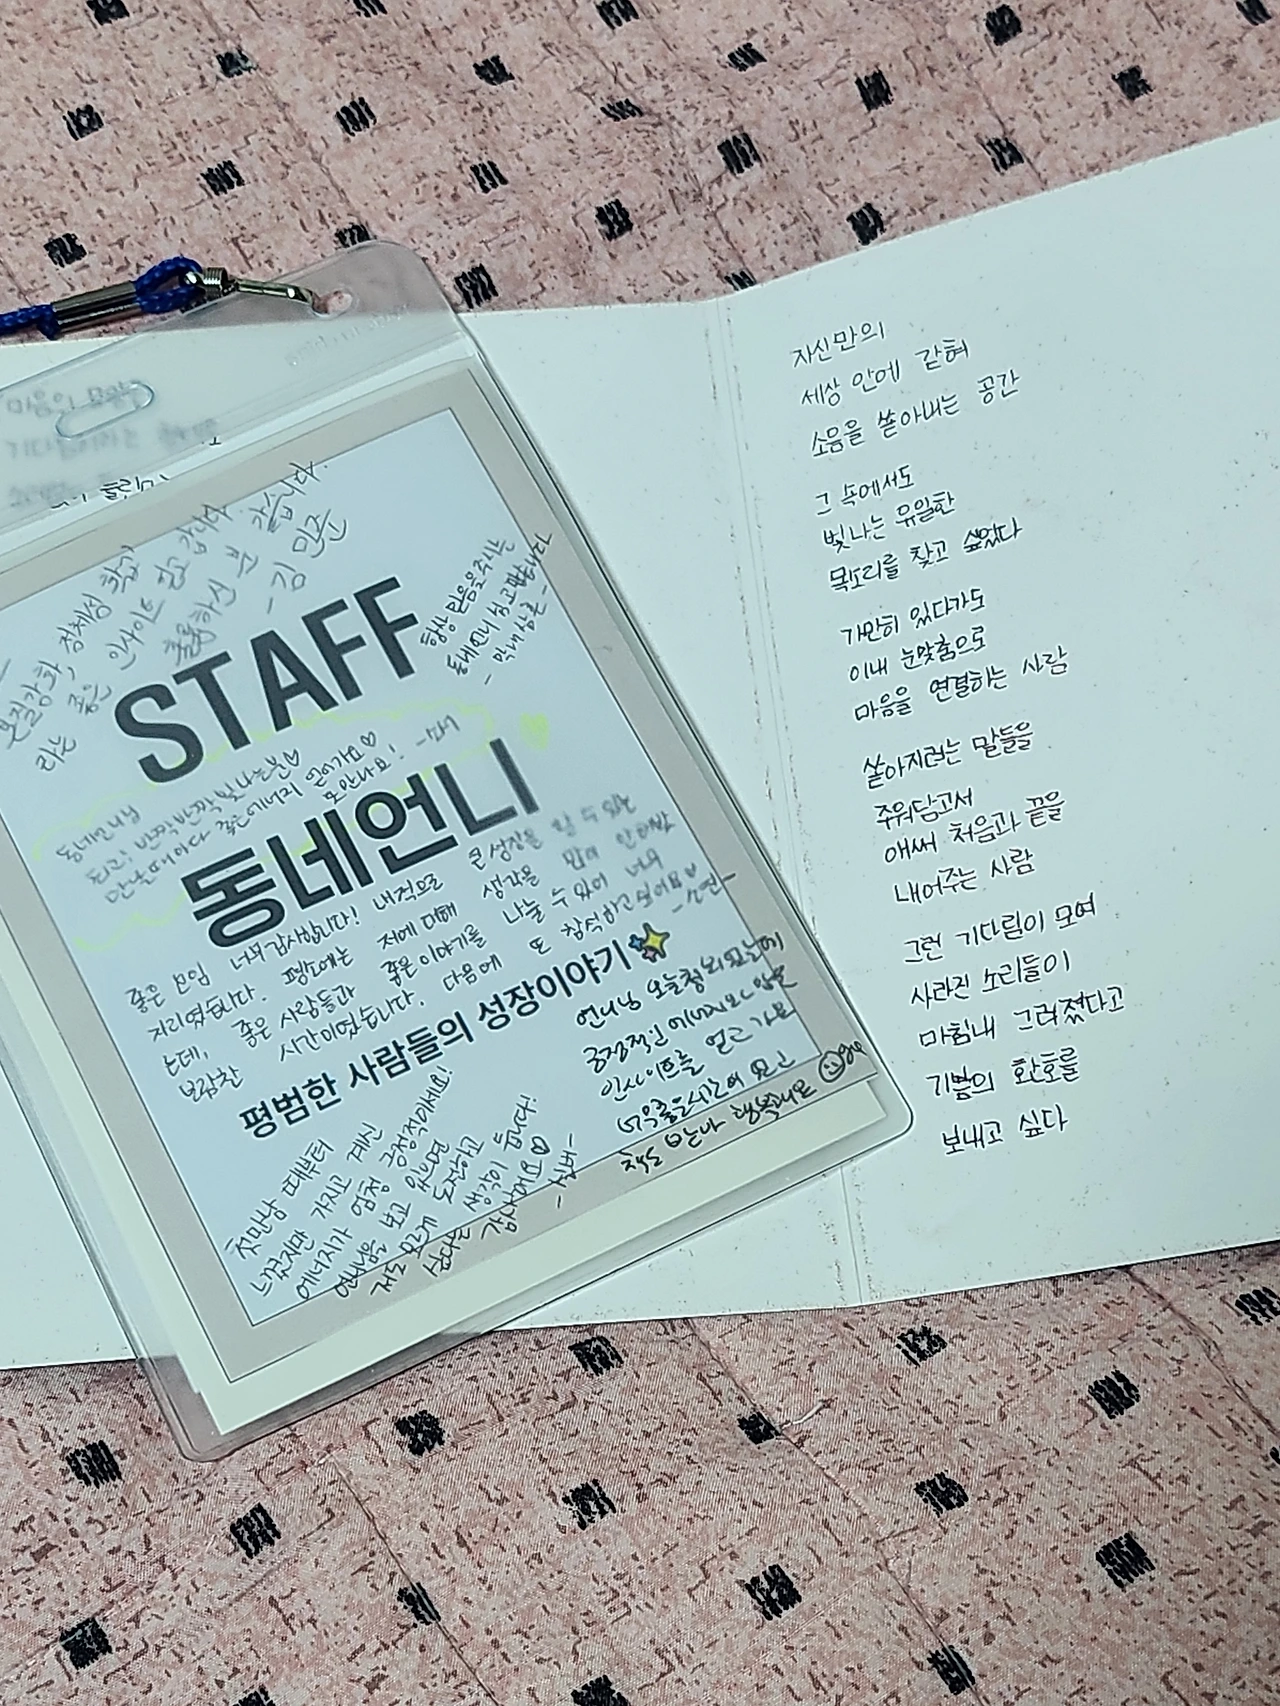 본질강화, 정체성 확립
라는 좋은 인사이트 얻고 갑니다
훌륭하신 분 같습니다.
- 김민준
STAFF
항상 믿음을 주시는
동네언니 넘 고맙습니다
- 막내 삼촌 -
동네언니님
최고! 반짝반짝 빛나는분♡
만날때마다 좋은 에너지 얻어가요♡
또 만나요! -소서
동네언니
좋은 모임 너무 감사합니다! 내적으로 큰 성장을 할 수 있는
자리였습니다. 평소에는 저에 대해 생각을 많이 안 해봤
는데, 좋은 사람들과 좋은 이야기를 나눌 수 있어 너무
보람찬 시간이었습니다. 다음에 또 참석하고 싶어요♥
-소연-
평범한 사람들의 성장이야기
언니님 오늘 처음 뵈었는데
긍정적인 에너지와 많은
인사이트를 얻고 가요
너무 좋은 시간이 었고
저도 만나 행복해요
첫만남 때부터
느꼈지만 가지고 계신
에너지가 엄청 긍정적이세요!
언니님을 보고 있으면
저도 모르게 도전하고
싶다는 생각이 듭니다!
감사해요♡
자신만의
세상 안에 갇혀
소음을 쏟아내는 공간
그 속에서도
빛나는 유일한
목소리를 찾고 싶었다
가만히 있다가도
이내 눈맞춤으로
마음을 연결하는 사람
쏟아지려는 말들을
주워담고서
애써 처음과 끝을
내어주는 사람
그런 기다림이 모여
사라진 소리들이
마침내 그려졌다고
기쁨의 환호를
보내고 싶다